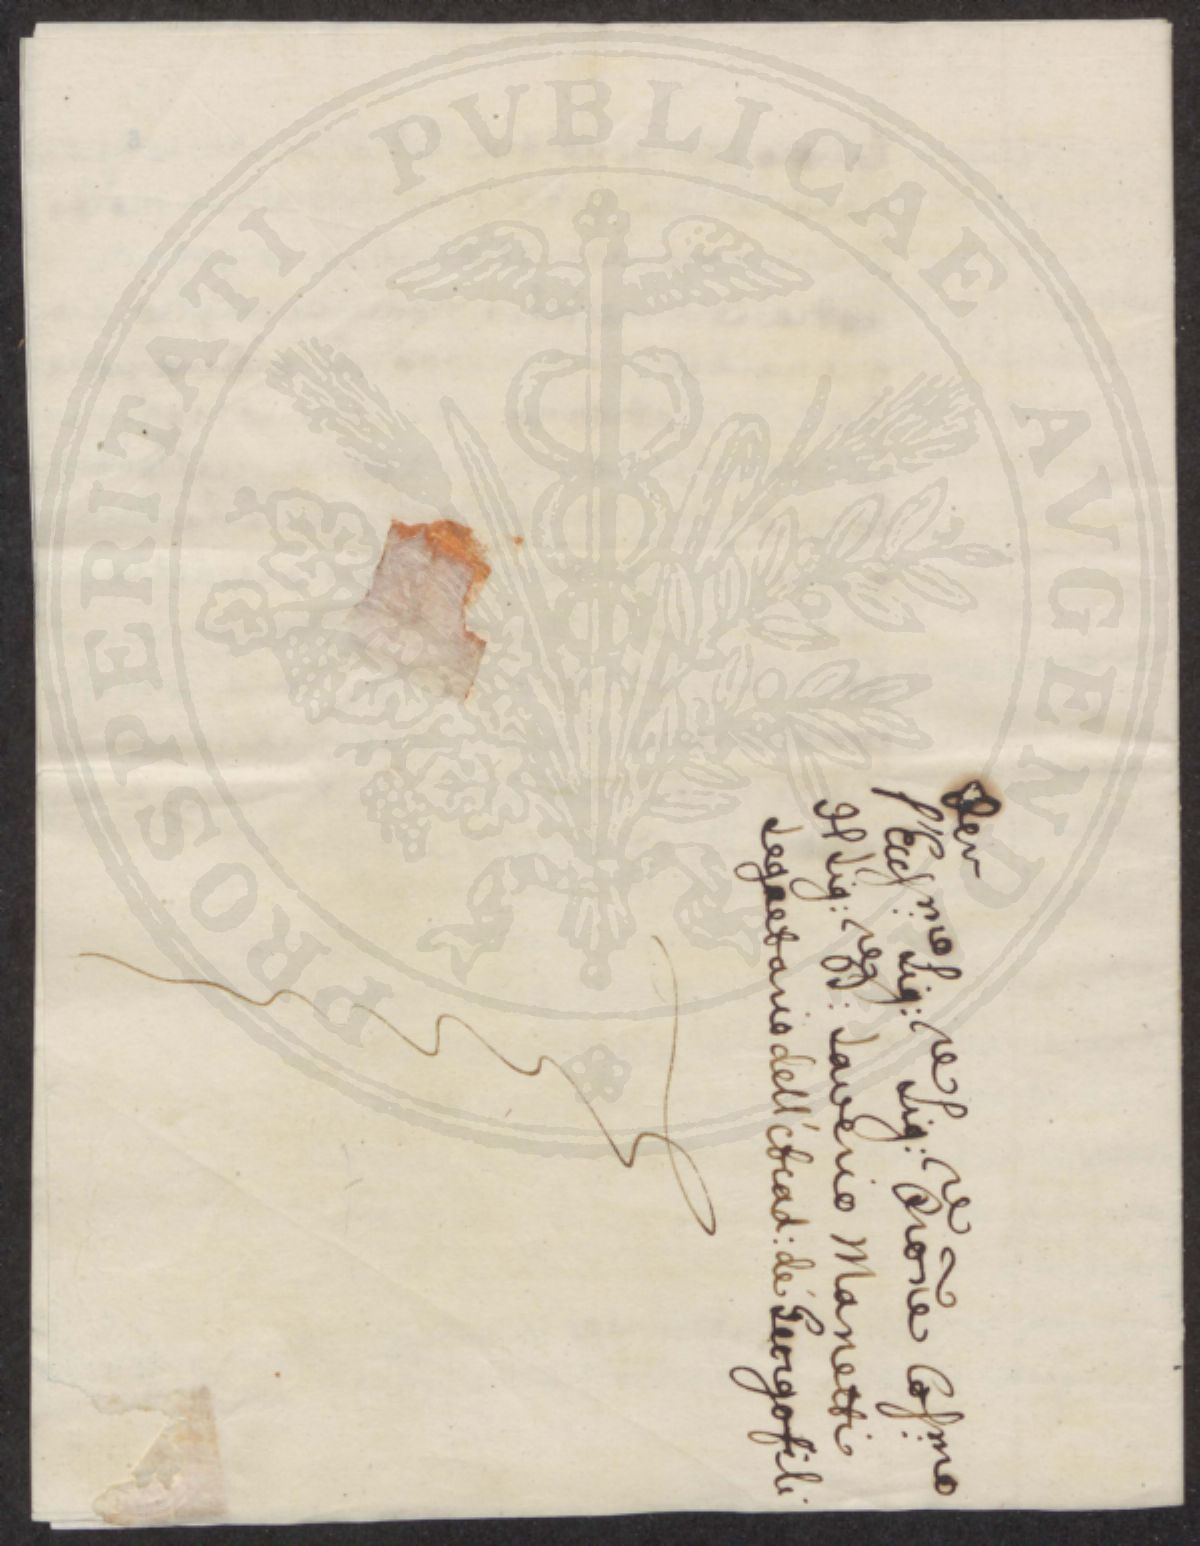 Per
l'Ecc:mo Sig:re Sig:re Prōne Col:mo
Il Sig:re D: Saverio Manetti
Segretario dell'Accad: de' Georgofili
PROSPERITATI PVBLICAE AVGENDAE